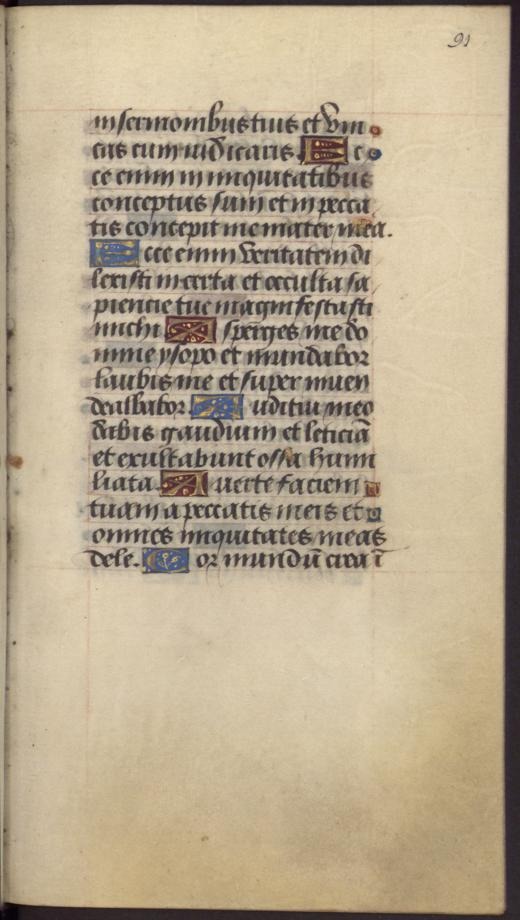 91
in sermonibus tuis et vin
cas cum iudicaris. E c
ce enim in iniquitatibus
conceptus sum et in pecca
tis concepit me mater mea.
E cce enim veritatem di
lexisti incerta et occulta sa
piencie tue magnifestasti
michi A sperges me do
mine ysopo et mundabor
lavabis me et super nivem
dealbabor. A uditui meo
dabis gaudium et leticiā
et exultabunt ossa humi
liata. A verte faciem
tuam a peccatis meis et
omnes iniquitates meas
dele. C or mundū crea ī